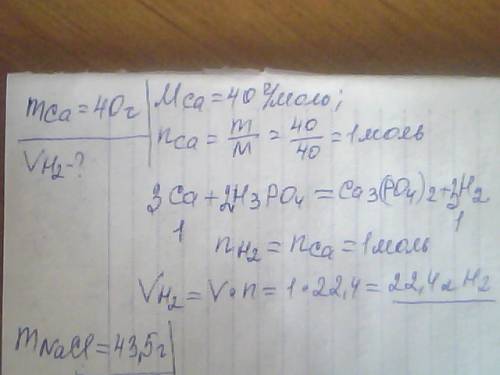 mCa = 40г | MCa = 40 г/моль;
VH2 - ? nCa = m/M = 40/40 = 1 моль
3Ca + 2H3PO4 = Ca3(PO4)2 + 3H2
1 1
nH2 = nCa = 1 моль
VH2 = V · n = 1 · 22,4 = 22,4 л H2
mNaCl = 43,5г